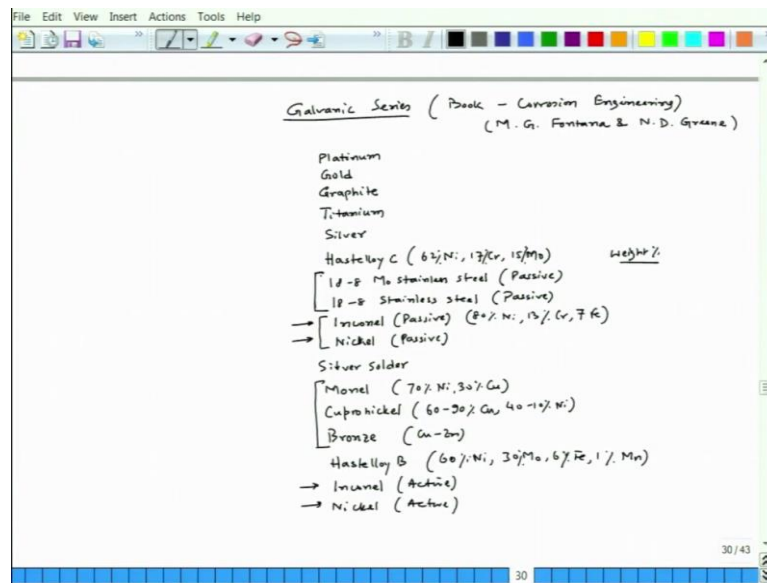 File Edit View Insert Actions Tools Help
B I
Galvanic Series ( Book - Corrosion Engineering)
(M. G. Fontana & N. D. Greene)
Platinum
Gold
Graphite
Titanium
Silver
Hastelloy C ( 62% Ni, 17% Cr, 15% Mo) Weight %
18-8 Mo Stainless steel (Passive)
18-8 Stainless steel (Passive)
→ Inconel (Passive) (80% Ni, 13% Cr, 7 Fe)
→ Nickel (Passive)
Silver solder
Monel ( 70% Ni, 30% Cu)
Cupronickel ( 60-90% Cu, 40-10% Ni)
Bronze (Cu-Zn)
Hastelloy B ( 60% Ni, 30% Mo, 6% Fe, 1% Mn)
→ Inconel (Active)
→ Nickel (Active)
30/43
30